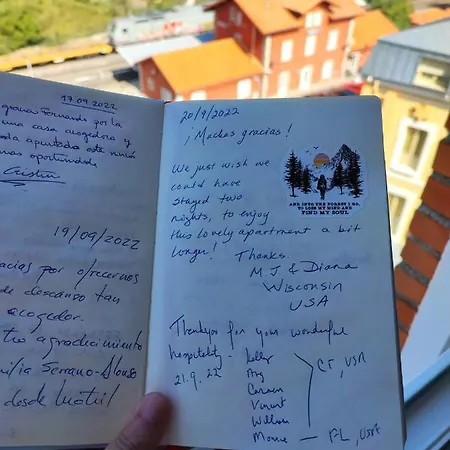 17.09.2022
gracias Fernando por la
una casa acogedora y
19/09/2022
acias por ofrecernos
de descanso tan
acogedor.
agradecimiento
Serrano-Alonso
desde Motril
20/9/2022
¡Muchas gracias!
We just wish we
could have
stayed two
nights, to enjoy
this lovely apartment a bit
longer!
Thanks.
MJ & Diana
Wisconsin
USA
AND INTO THE FOREST I GO,
TO LOSE MY MIND AND
FIND MY SOUL
Thankyou for your wonderful
hospitality - Kelly
21.9.22 Amy
Carmen
Vincent
William
CT, USA
FL, USA